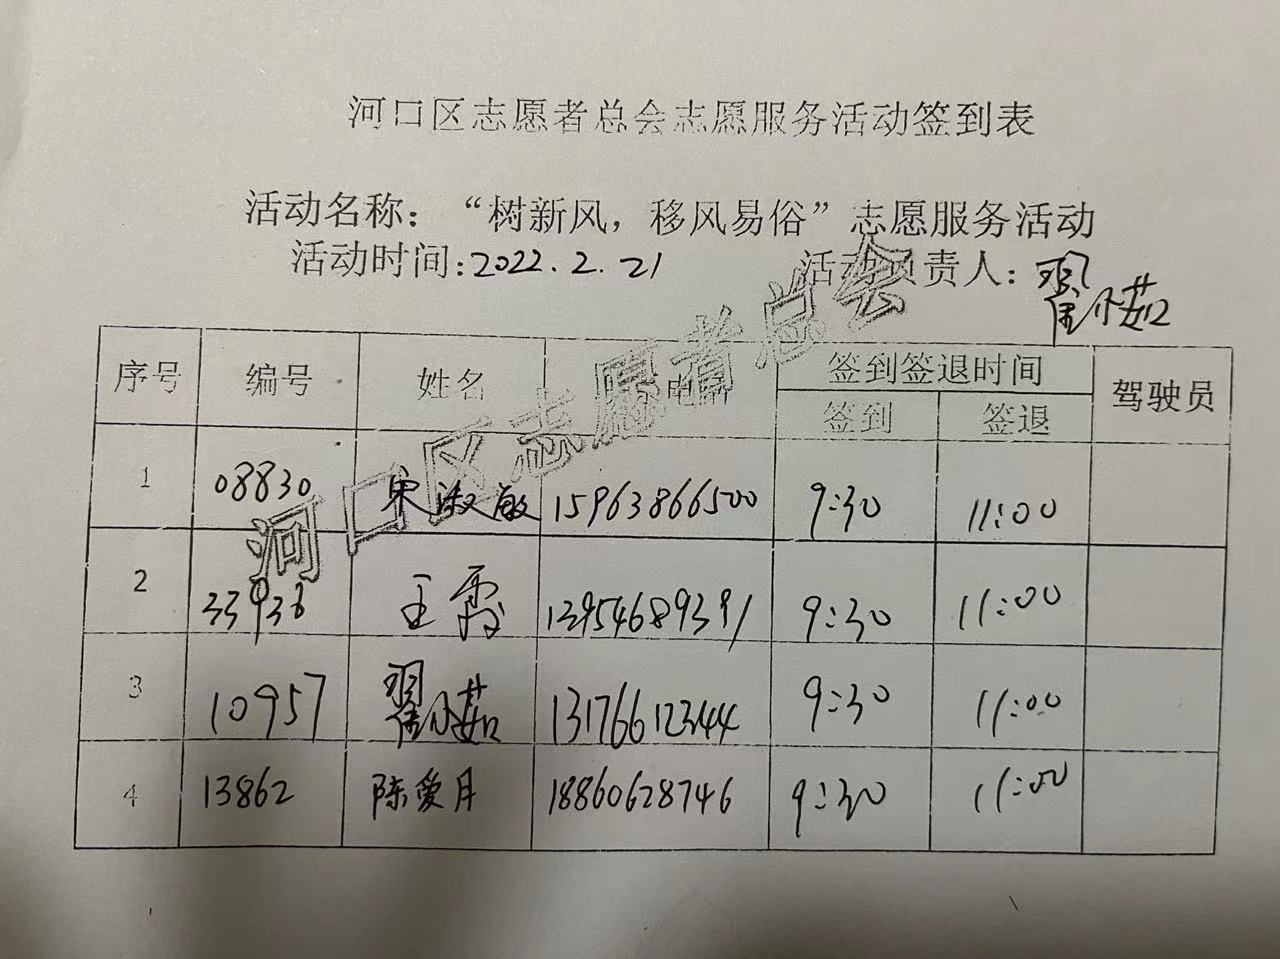 河口区志愿者总会志愿服务活动签到表
活动名称：“树新风，移风易俗”志愿服务活动
活动时间:2022.2.21 活动负责人:翟小茹
序号 编号 姓名 电话 签到签退时间 驾驶员
签到 签退
1 08830 宋淑敏 15963866500 9:30 11:00
2 33938 王霞 13954689391 9:30 11:00
3 10957 翟小茹 13176612344 9:30 11:00
4 13862 陈爱月 18860628746 9:30 11:00
河口区志愿者总会